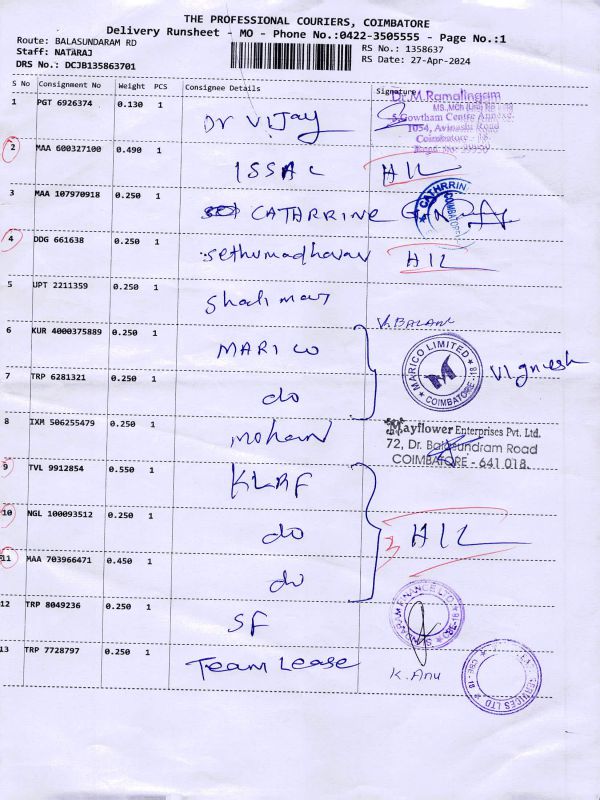 THE PROFESSIONAL COURIERS, COIMBATORE
Delivery Runsheet - MO - Phone No.:0422-3505555 - Page No.:1
Route: BALASUNDARAM RD
Staff: NATARAJ
DRS No.: DCJB135863701
RS No.: 1358637
RS Date: 27-Apr-2024
S No Consignment No Weight PCS Consignee Details Signature
1 PGT 6926374 0.130 1 Dr Vijay
Dr.M.Ramalingam
5,Gowtham Centre Annexe,
1054, Avinashi Road
Coimbatore - 18.
2 MAA 600327100 0.490 1 ISSAC HIL
3 MAA 107970918 0.250 1 CATHRRINE
CATHRRIN
COIMBATORE
4 DDG 661638 0.250 1 sethumadhavan HIL
5 UPT 2211359 0.250 1 Shalimar
V. BALAN
6 KUR 4000375889 0.250 1 MARICO
MARICO LIMITED
COIMBATORE - 18
M
Vignesh
7 TRP 6281321 0.250 1 do
8 IXM 506255479 0.250 1 Mohan
Mayflower Enterprises Pvt. Ltd.
72, Dr. Balasundram Road
COIMBATORE - 641 018.
9 TVL 9912854 0.550 1 KLRF
10 NGL 100093512 0.250 1 do HIL
3
11 MAA 703966471 0.450 1 do
12 TRP 8049236 0.250 1 SF
SUNDARAM FINANCE LTD
13 TRP 7728797 0.250 1 Team Lease
K. Anu
SERVICES LTD
CBE - 18